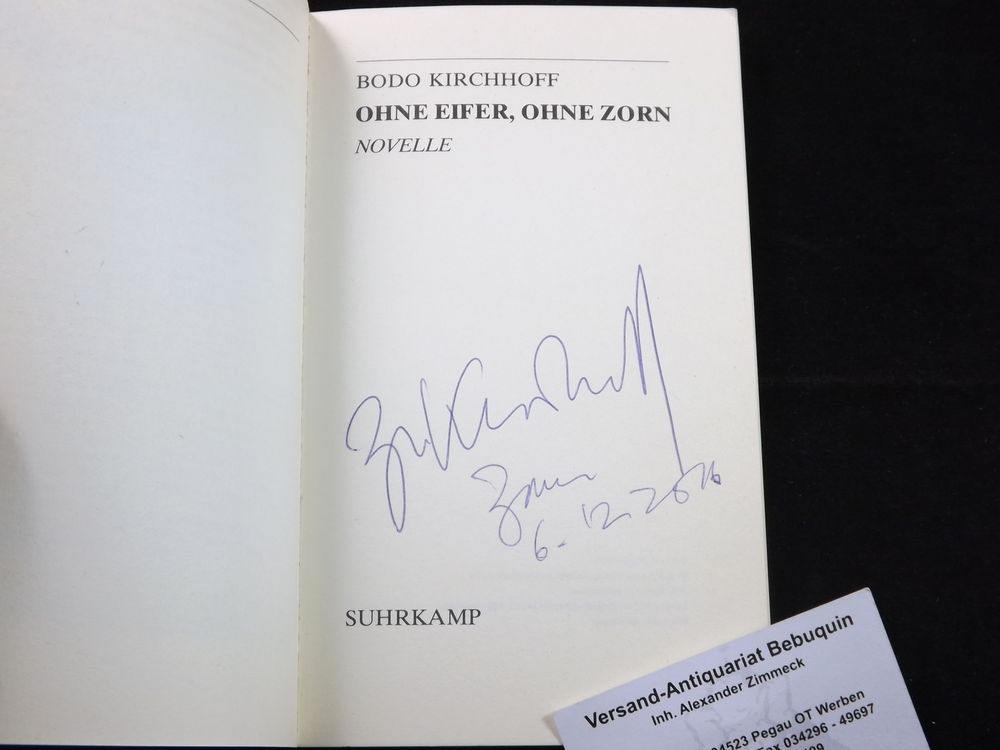 BODO KIRCHHOFF
OHNE EIFER, OHNE ZORN
NOVELLE
Kirchhoff
6.12.2016
SUHRKAMP
Versand-Antiquariat Bebuquin
Inh. Alexander Zimmeck
04523 Pegau OT Werben
Fax 034296 - 49697